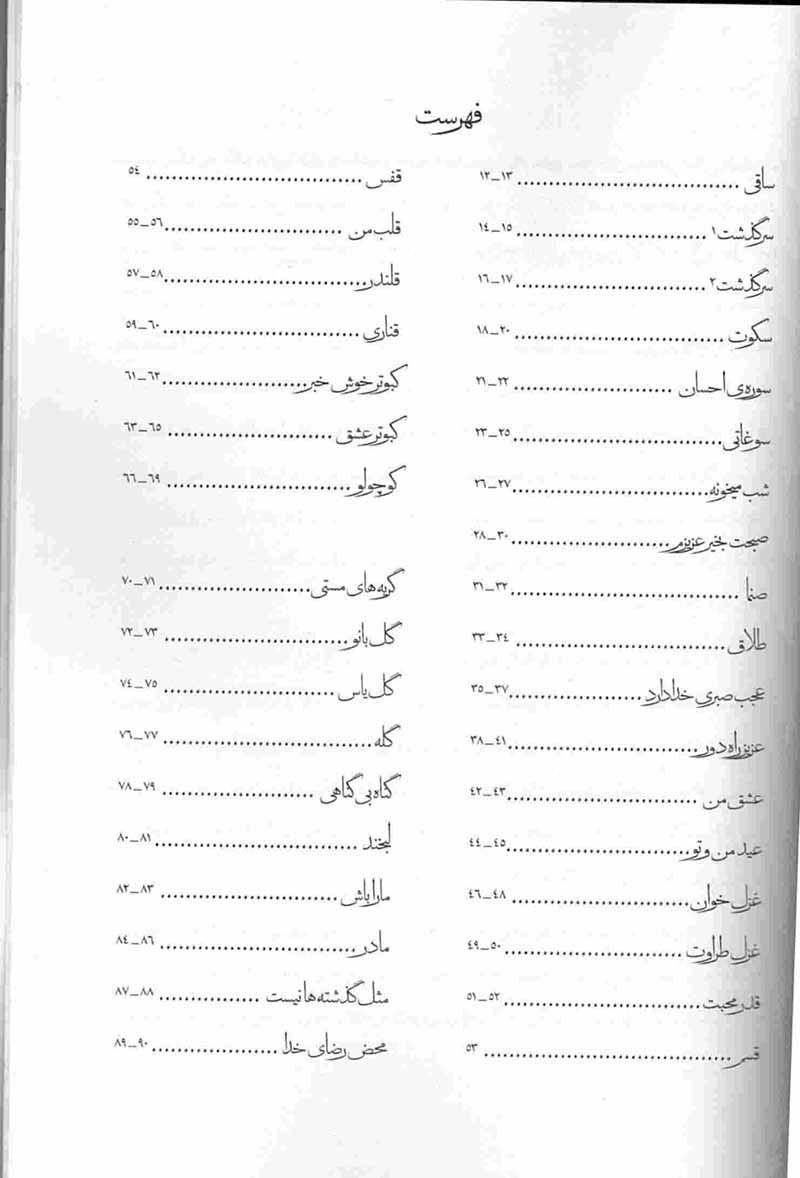 فهرست
ساقی ................................ ۱۲_۱۳
سرگذشت۱ ............................ ۱٤_۱٥
سرگذشت۲ ............................ ۱٦_۱۷
سکوت ............................... ۱۸_۲۰
سوره‌ی احسان ....................... ۲۱_۲۲
سوغاتی .............................. ۲۳_۲٥
شب میخونه ............................ ۲٦_۲۷
صبحت بخیر عزیزم ....................... ۲۸_۳۰
صنما ................................. ۳۱_۳۲
طلاق ............................... ۳۳_۳٤
عجب صبری خدا دارد ................... ۳٥_۳۷
عزیز راه دور ........................... ۳۸_٤۱
عشق من ............................ ٤۲_٤۳
عید من و تو ........................... ٤٤_٤٥
غزل خوان .......................... ٤٦_٤۸
غزل طراوت .......................... ٤۹_٥۰
قدر محبت ............................. ٥۱_٥۲
قسم .................................... ٥۳
قفس ............................... ٥٤
قلب من .......................... ٥٥_٥٦
قلندر .............................. ٥۷_٥۸
قناری ............................. ٥۹_٦۰
کبوتر خوش خبر ..................... ٦۱_٦۲
کبوتر عشق ........................ ٦۳_٦٥
کوچولو ........................... ٦٦_٦۹
گریه های مستی ...................... ۷۰_۷۱
گل بانو ........................... ۷۲_۷۳
گل یاس ......................... ۷٤_۷٥
گله ............................... ۷٦_۷۷
گناه بی گناهی ...................... ۷۸_۷۹
لبخند ............................. ۸۰_۸۱
ما را باش .......................... ۸۲_۸۳
مادر ............................. ۸٤_۸٦
مثل گذشته ها نیست ............... ۸۷_۸۸
محض رضای خدا ................... ۸۹_۹۰